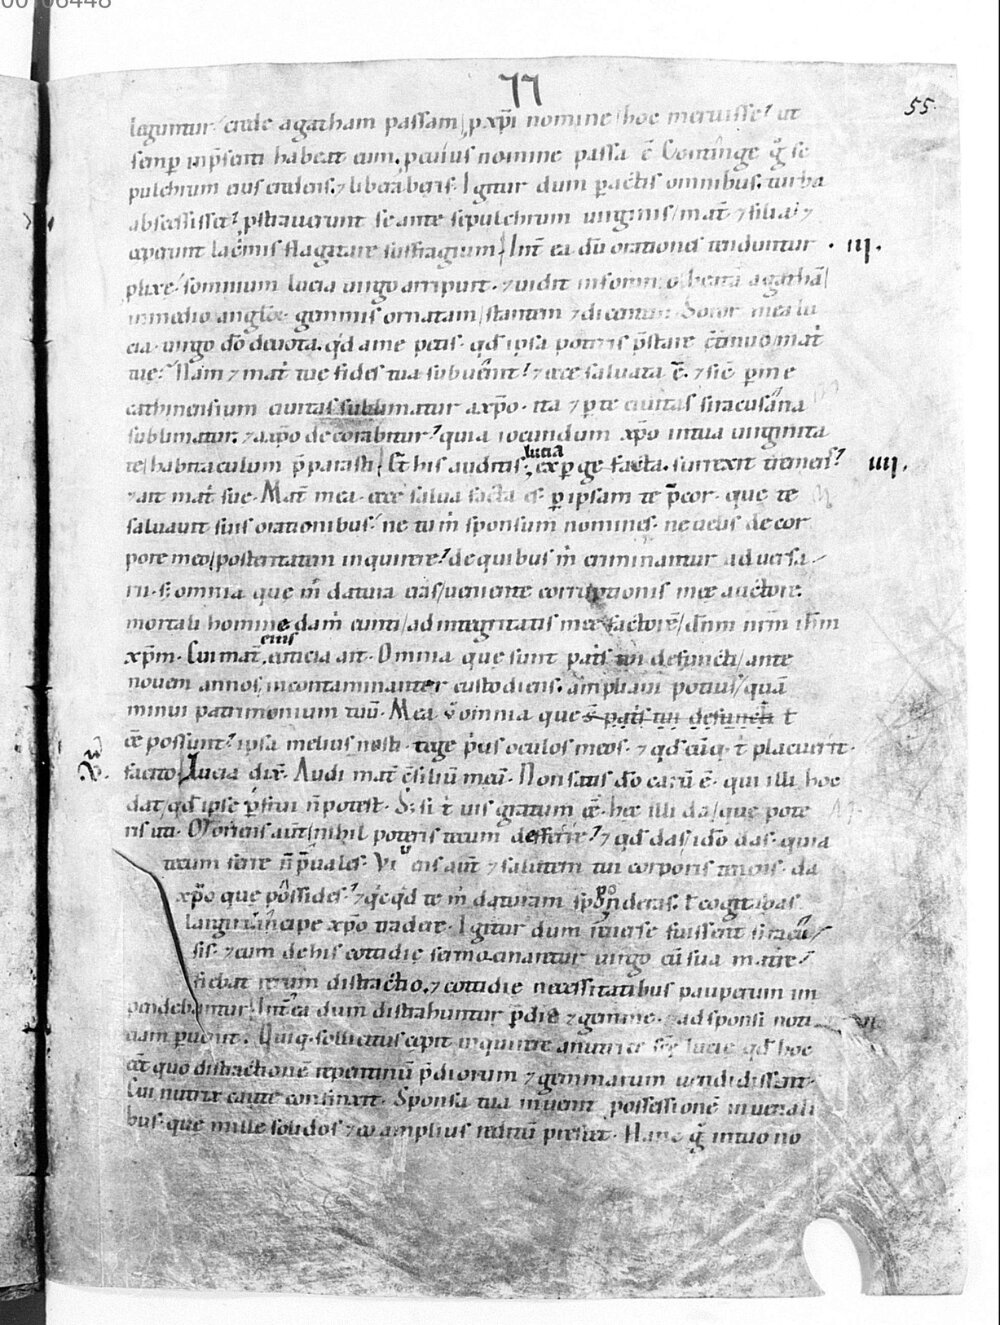 00106448
77
55.
leguntur. crede agatham passam p xp̄i nomine hoc meruisse? ut
semp̄ in p̄senti habeat eum, p cuius nomine passa ē. Contínge g̊ se
pulchrum eius credens. ⁊ liberáberis. Igitur dum pactis omnibus. turba
abscessisset? p̄strauerunt se ante sepulchrum uirginis mat̄ ⁊ filia? ⁊
ceperunt lac̄mis flagitare suffragium. Int̄ ea dū orationes tenduntur · III.
plixe. somnium lucia uirgo arripuit. ⁊ uidit in somnio beatā agathā
in medio anglōꝝ gemmis ornatam stantem ⁊ dicentem. Soror mea lu
cia. uirgo dō deuota. q̇d a me petis. qd̄ ipsa poteris p̄stare c̄tinuo mat̄
tue? Nam ⁊ mat̄ tue fides tua subuēnit? ⁊ ecce saluata ē. ⁊ sic̄ p me
cathinensium ciuitas sublimatur a xp̄o. ita ⁊ p te ciuitas siracusana
sublimatur. ⁊ a xp̄o decorabitur? quia iocundum xp̄o in tua uirginita
te habitaculum p̄parasti. Et his auditis, lucia exp̄gefacta. surrexit tremens? IIII.
⁊ ait mat̄ sue. Mat̄ mea. ecce salua facta es. p ipsam te p̄cor. que te
saluauit suis orationibus. ne tu m̄ sponsum nomines. ne uelis de cor
pore meo posteritatem inquirere? de quibus m̄ criminantur aduersa
rii. s; omnia que m̄ datura eras ueniente corruptionis mee auctore
mortali homine dam̄ eunti ad integritatis mee factorē dn̄m nr̄m ih̄m
xp̄m. Cui mat̄ eius euticia ait. Omnia que sunt pat̄s tui defuncti ante
nouem annos incontaminanter custodiens. ampliaui potius quā
minui patrimonium tuū. Mea ů omnia que s̄ pat̄s tui defuncti t̄
ēe possunt? ipsa melius nosti. tege p̄us oculos meos. ⁊ qd̄ cūq; t̄ placuerit.
facito. Lucia dix̄. Audi mat̄ c̄siliū meū. Non satis dō carū ē. qui illi hoc
dat qd̄ ipse p̄frui n̄ potest. S; si t̄ uis gratum ēe. hec illi da que pote
ris uti. Moriens aūt nihil poteris tecum defferre? ⁊ qd̄ das ido das. quia
tecum ferre n̄ p̄uales. Viuens aūt ⁊ salutem tui corporis tenens. da
xp̄o que possides? ⁊ q̇cq̇d te m̄ daturam sponderas. t cogitabas
largiri incipe xp̄o tradere. Igitur dum reuerse fuissent siracu
sis. ⁊ cum de his cottidie sermocinaretur uirgo cū sua matre?
fiebat rerum distractio. ⁊ cottidie necessitatibus pauperum im
pendebantur. Int̄ ea dum distrahuntur p̄dia ⁊ gemme. ad sponsi noti
ciam puenit. Quiq; sollicitus cepit inquirere a nutrice sc̄e lucie qd̄ hoc
eēt quo distractionē repentinū p̄diorum ⁊ gemmarum uendidissent.
Cui nutrix caute confinxit. Sponsa tua inuenit possessionē in uenali
bus. que mille solidos ⁊ eo amplius redditū prestet. Hanc g̊ in tuo no